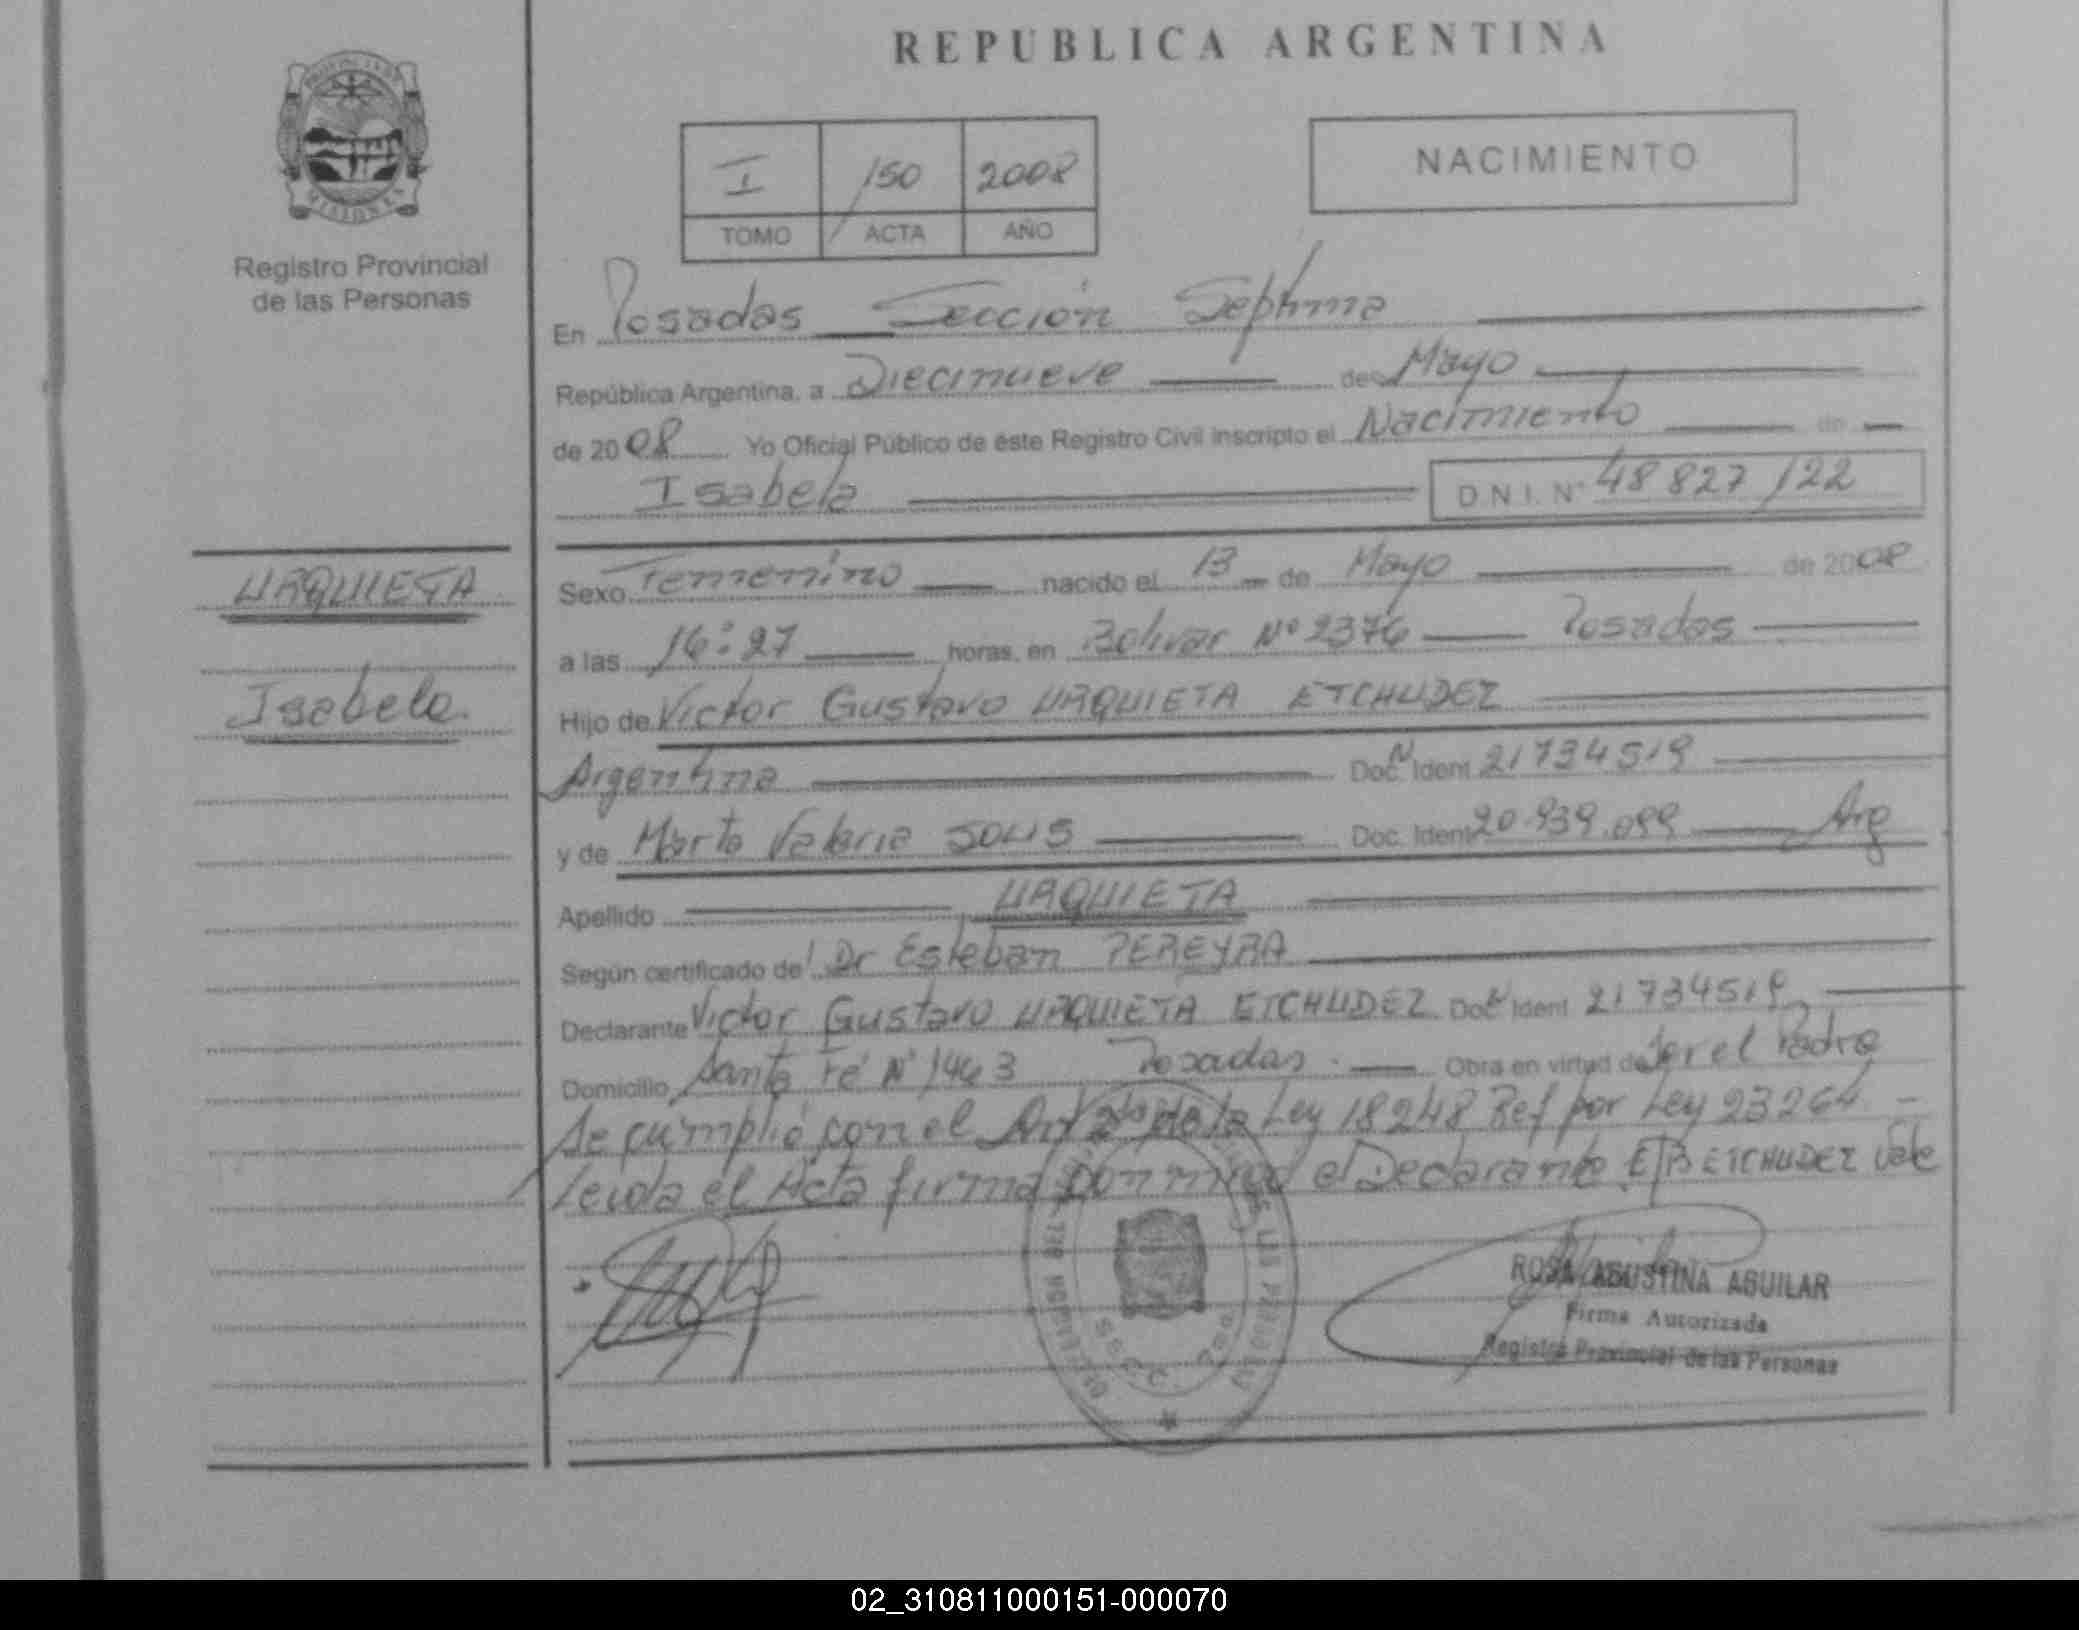 REPUBLICA ARGENTINA
PROVINCIA DE
MISIONES
Registro Provincial
de las Personas
I 150 2008
TOMO ACTA AÑO
NACIMIENTO
En Posadas Sección Séptima
República Argentina, a Diecinueve de Mayo
de 2008 Yo Oficial Público de éste Registro Civil inscripto el Nacimiento de
Isabela D.N.I. Nº 48 827 122
URQUIETA
Isabela
Sexo Femenino nacido el 13 de Mayo de 2008
a las 16:27 horas, en Bolivar Nº 2376 Posadas
Hijo de Victor Gustavo URQUIETA ETCHUDEZ
Argentina Doc. Ident 21734519
y de Marta Valeria SOLIS Doc. Ident 20.939.099 Arg
Apellido URQUIETA
Según certificado de Dr Esteban PEREYRA
Declarante Victor Gustavo URQUIETA ETCHUDEZ Doc. Ident 21734519
Domicilio Santa Fé Nº 1463 Posadas. Obra en virtud de Ser el Padre
Se cumplió con el Art 2º de la Ley 18248 Ref por Ley 23264 -
Leida el Acta firma conmigo el Declarante. E/B ETCHUDEZ Vale
ROSA AGUSTINA AGUILAR
Firma Autorizada
Registro Provincial de las Personas
02_310811000151-000070